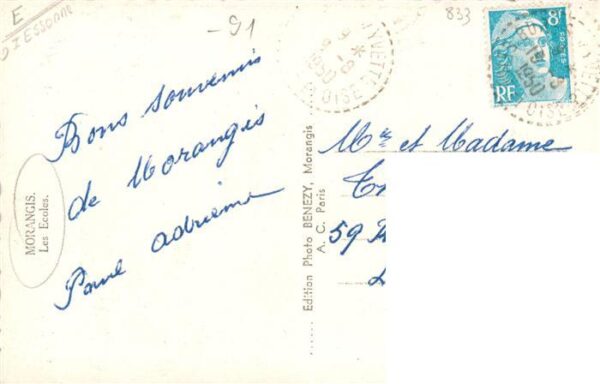 E
91 ESSONNE
-91
833
Bons souvenirs
de Morangis
Paul Adrienne
MORANGIS.
Les Ecoles.
Edition Photo BENEZY, Morangis
A. C. Paris
YVETTE
1950
OISE
8F
POSTES
RF
1950
OISE
Mr et Madame
59